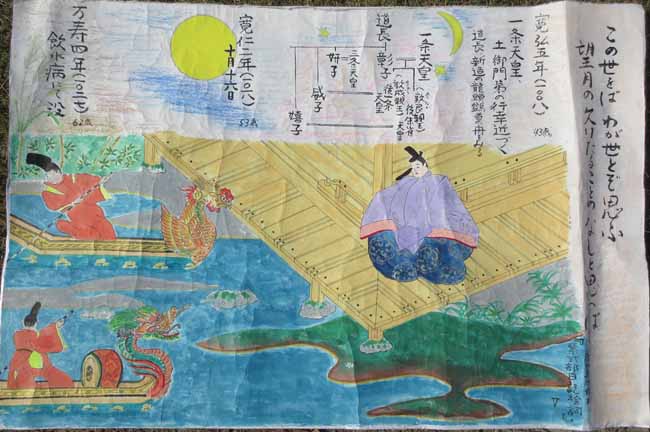 この世をば わが世とぞ思ふ
望月の欠けたることのなしと思へば
寛弘五年(一〇〇八)
43歳
一条天皇、
土御門第の行幸近づく
道長、新造の龍頭鷁首舟みる。
一条天皇
道長
彰子
(敦成親王)
後一条
天皇
(敦良親王)
後朱雀
天皇
妍子
三条天皇
威子
嬉子
寛仁二年(一〇一八)
十月十六日
53歳
万寿四年(一〇二七)
飲水病にて没
62歳